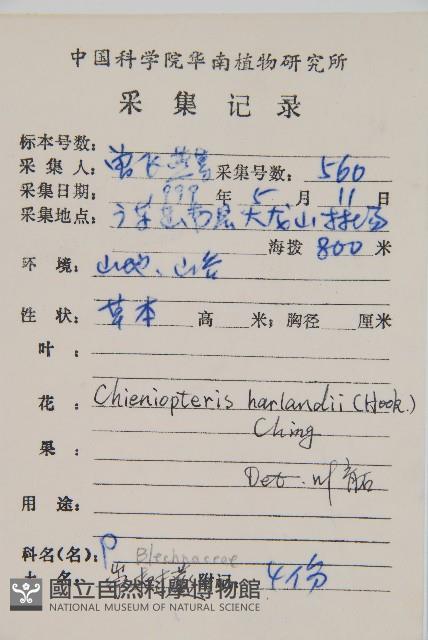 中国科学院华南植物研究所
采集记录
标本号数：
采集人：曾飞燕 采集号数：560
采集日期：1999年5月11日
采集地点：广东 大龙山林场
海拨 800 米
环境：山地、山谷
性状：草本 高 米；胸径 厘米
叶：
花：Chieniopteris harlandii (Hook.)
Ching
果：
Det.
用途：
科名(名)：P Blechnaceae
土名： 附记 4份
國立自然科學博物館
NATIONAL MUSEUM OF NATURAL SCIENCE